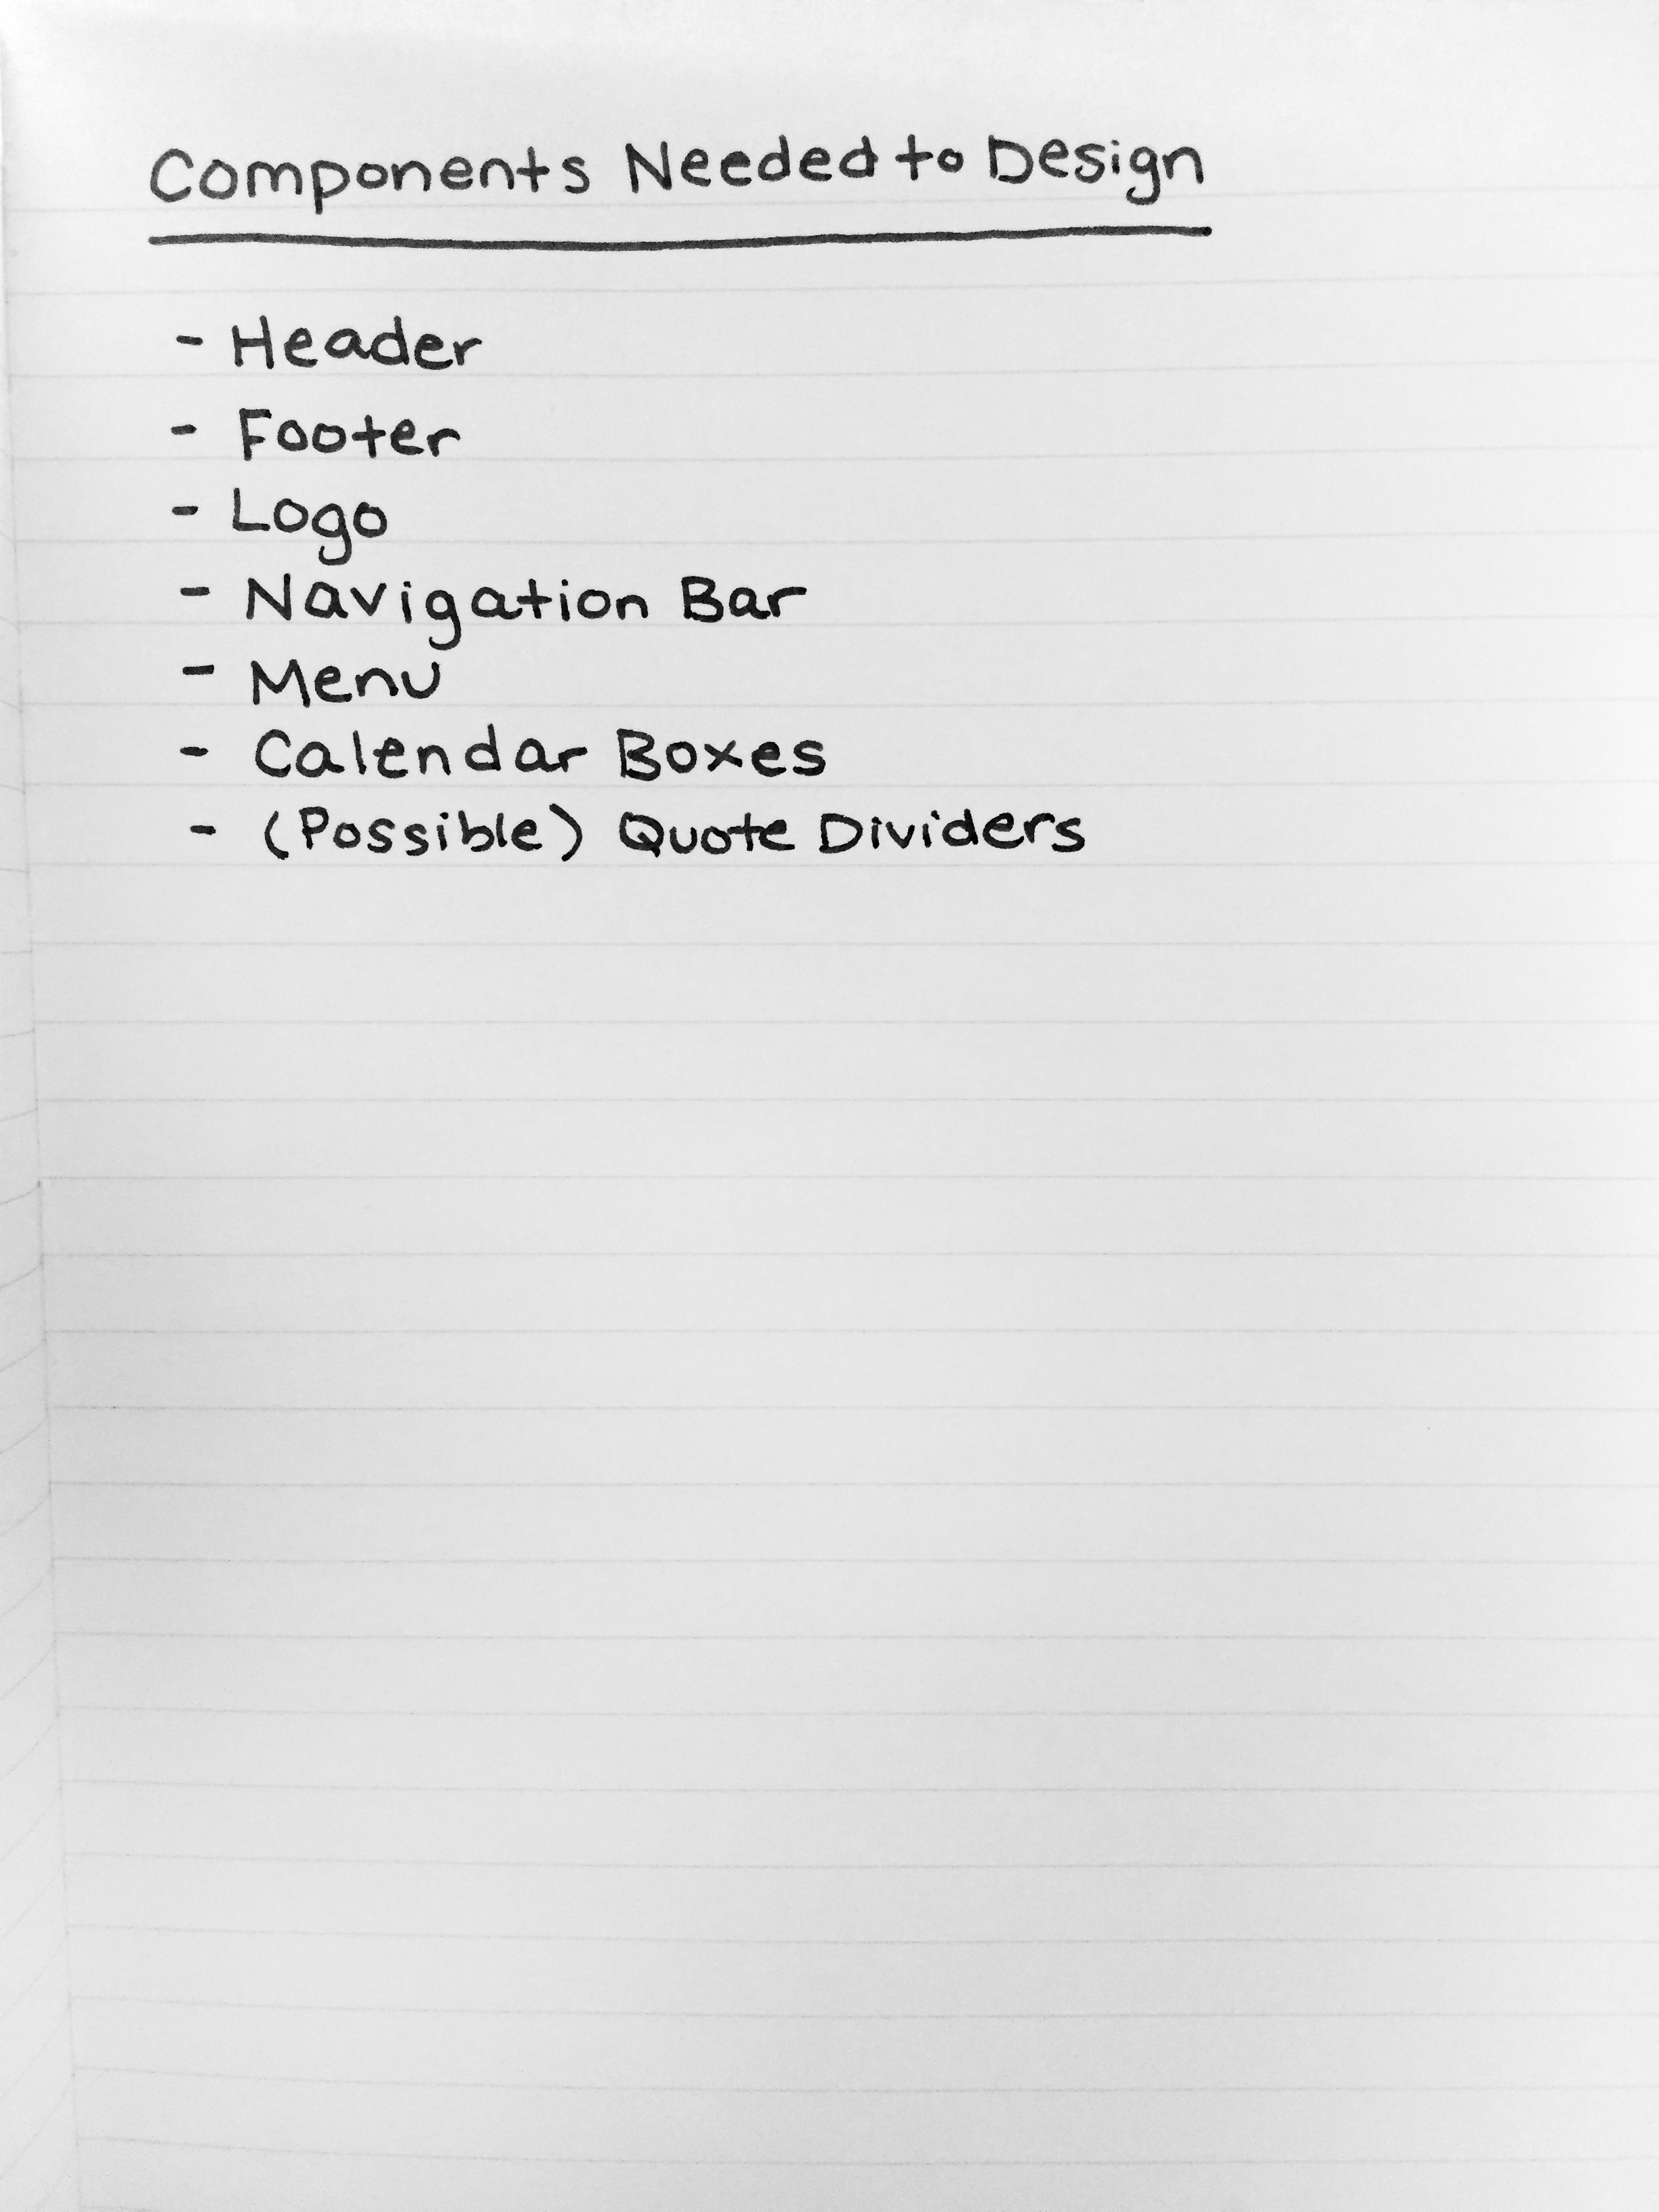 Components Needed to Design
- Header
- Footer
- Logo
- Navigation Bar
- Menu
- Calendar Boxes
- (Possible) Quote Dividers